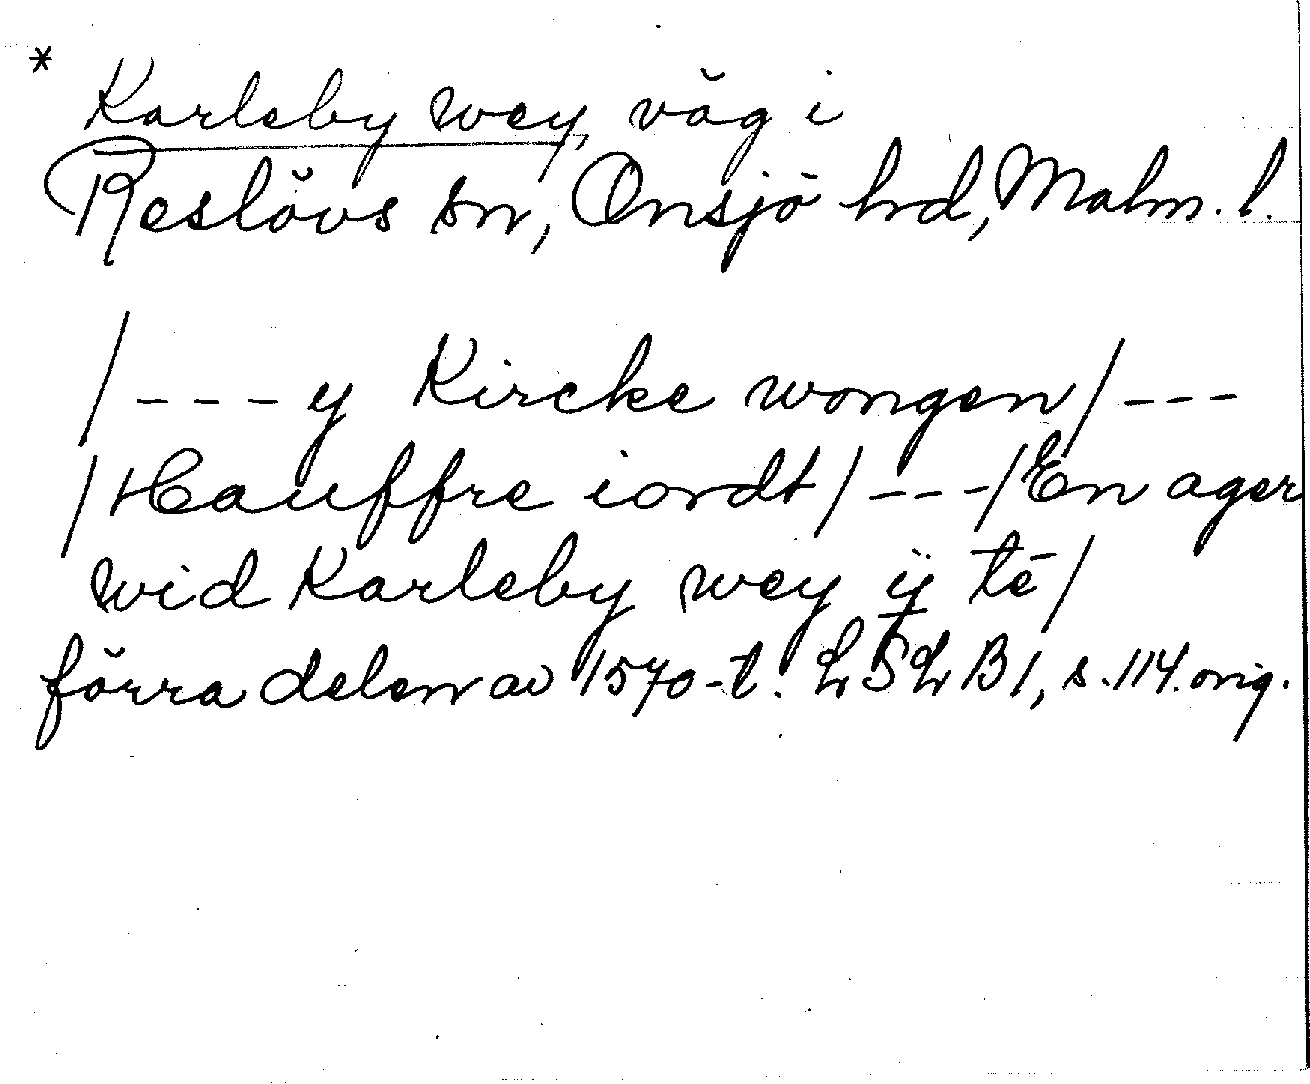 * Karleby wey, väg i
Reslövs sn, Onsjö hrd, Malm. l.
/---y Kircke wongen/---
/Hauffre iordt/---/En ager
wid Karleby wey ÿ tē/
förra delen av 1570-t. LSLB1, s. 114. orig.